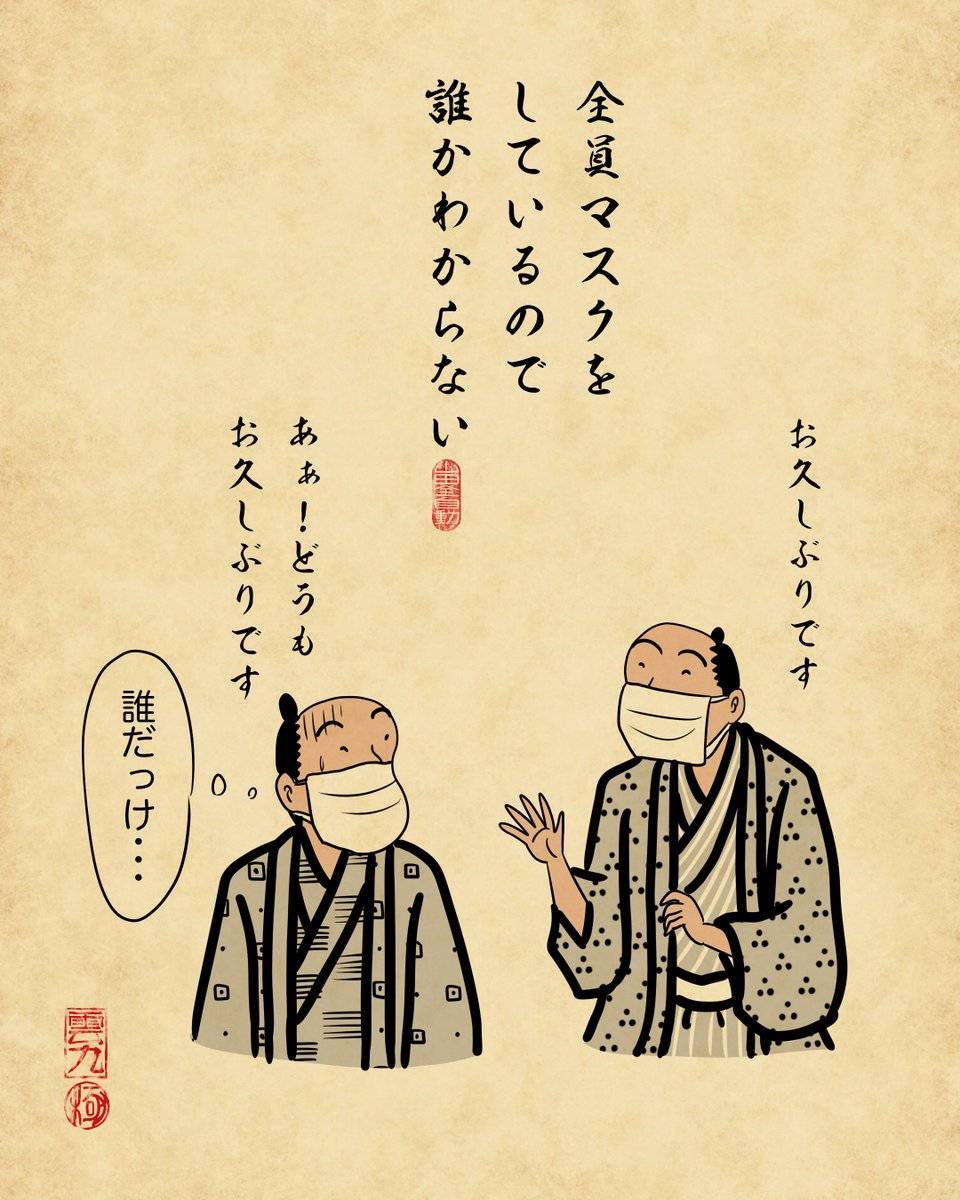 全員マスクを
しているので
誰かわからない
お久しぶりです
あぁ！どうも
お久しぶりです
誰だっけ・・・